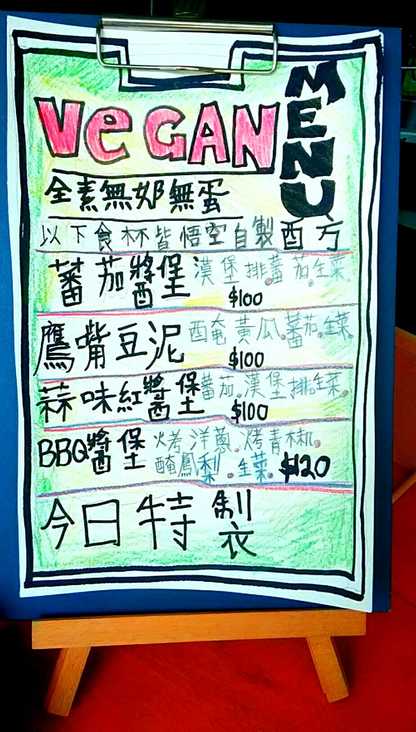 VeGAN
MENU
全素無奶無蛋
以下食材皆悟空自製配方
蕃茄醬堡 漢堡排.蕃茄.生菜
$100
鷹嘴豆泥 醃黃瓜.蕃茄.生菜.
$100
蒜味紅醬堡 蕃茄.漢堡排.生菜.
$100
BBQ醬堡 烤洋蔥.烤青椒.
醃鳳梨.生菜. $120
今日特製